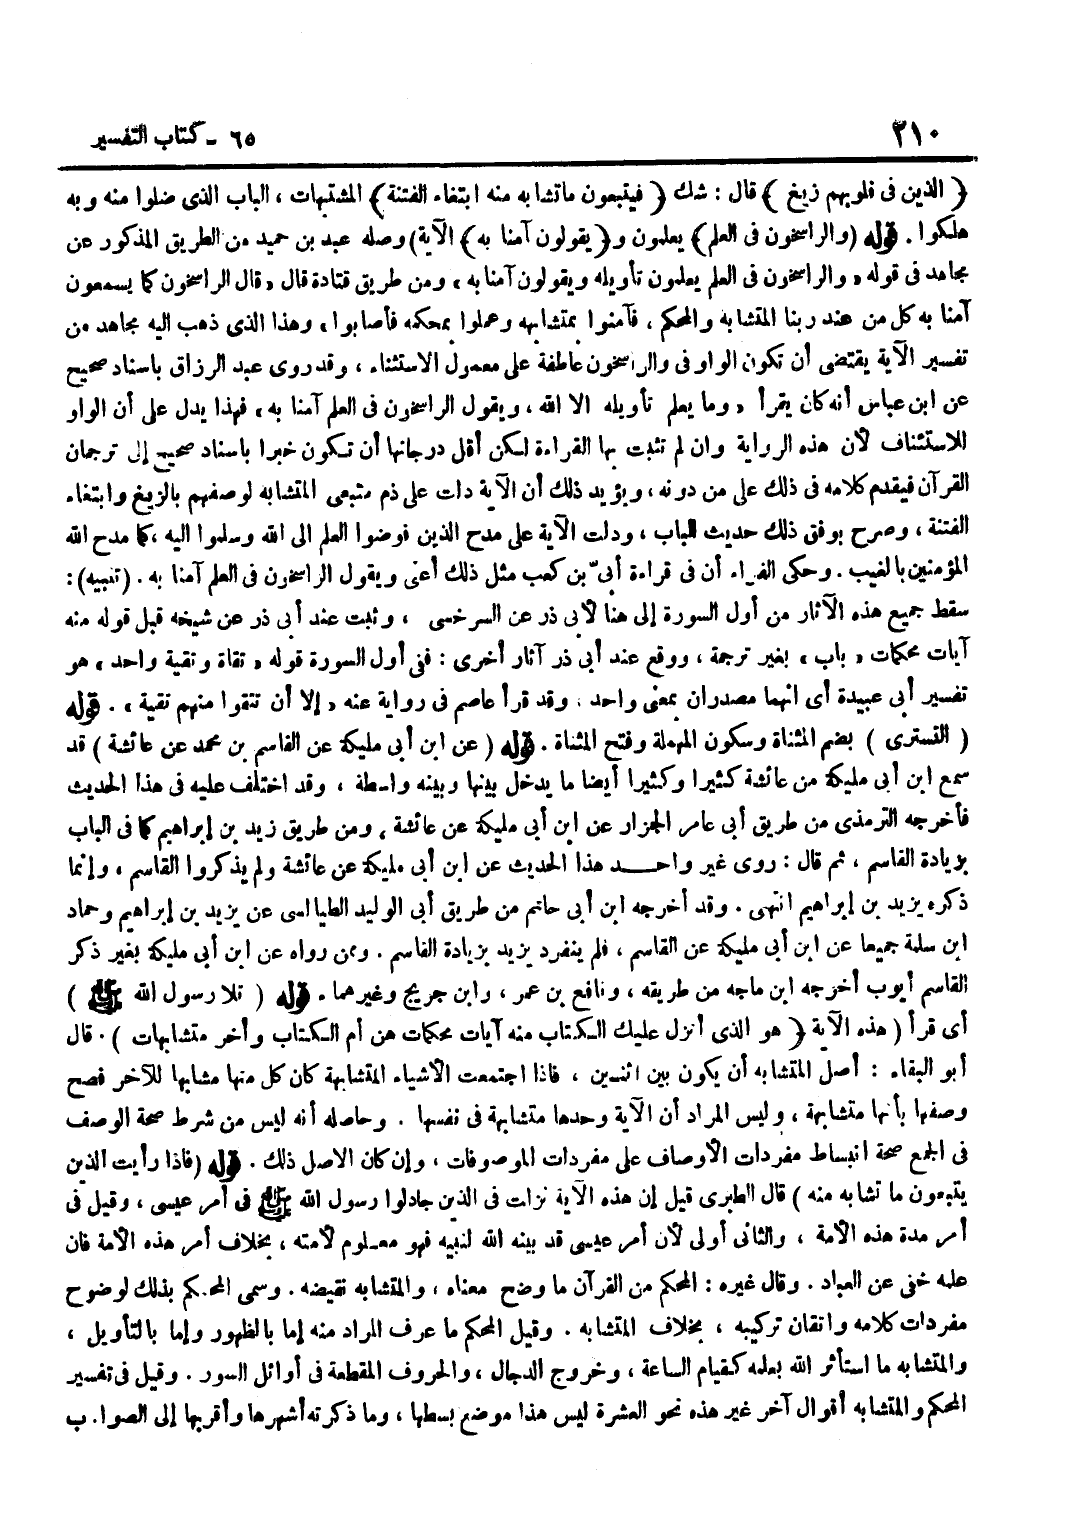 ٢١٠
٦٥ - كتاب التفسير
﴿ الذين فى قلوبهم زيغ ﴾ قال : شك ﴿ فيتبعون ماتشابه منه ابتغاء الفتنة﴾ المشتبهات ، الباب الذى ضلوا منه وبه
هلكوا . قوله (والراسخون فى العلم) يعلمون و﴿يقولون آمنا به﴾ الآية) وصله عبد بن حميد من الطريق المذكور عن
مجاهد فى قوله « والراسخون فى العلم يعلمون تأويله ويقولون آمنا به » ومن طريق قتادة قال « قال الراسخون كما يسمعون
آمنا به كل من عند ربنا المتشابه والمحكم ، فآمنوا بمتشابهه وعملوا بمحكمه فأصابوا » وهذا الذى ذهب اليه مجاهد من
تفسير الآية يقتضى أن تكون الواو فى والراسخون عاطفة على معمول الاستثناء ، وقد روى عبد الرزاق باسناد صحيح
عن ابن عباس أنه كان يقرأ « وما يعلم تأويله الا الله ، ويقول الراسخون فى العلم آمنا به » فهذا يدل على أن الواو
للاستئناف لأن هذه الرواية وان لم تثبت بها القراءة لكن أقل درجاتها أن تكون خبرا باسناد صحيح إلى ترجمان
القرآن فيقدم كلامه فى ذلك على من دونه ، ويؤيد ذلك أن الآية دلت على ذم متبعى المتشابه لوصفهم بالزيغ وابتغاء
الفتنة ، وصرح بوفق ذلك حديث الباب ، ودلت الآية على مدح الذين فوضوا العلم الى الله وسلموا اليه ، كما مدح الله
المؤمنين بالغيب . وحكى الفراء أن فى قراءة أبىّ بن كعب مثل ذلك أعنى ويقول الراسخون فى العلم آمنا به . (تنبيه) :
سقط جميع هذه الآثار من أول السورة إلى هنا لأبى ذر عن السرخسى ، وثبت عند أبى ذر عن شيخه قبل قوله منه
آيات محكمات « باب » بغير ترجمة ، ووقع عند أبى ذر آثار أخرى : ففى أول السورة قوله « تقاة وتقية واحد » هو
تفسير أبى عبيدة أى انهما مصدران بمعنى واحد ، وقد قرأ عاصم فى رواية عنه « إلا أن تتقوا منهم تقية » . قوله
( التسترى ) بضم المثناة وسكون المهملة وفتح المثناة . قوله ( عن ابن أبى مليكة عن القاسم بن محمد عن عائشة ) قد
سمع ابن أبى مليكة من عائشة كثيرا وكثيرا أيضا ما يدخل بينها وبينه واسطة ، وقد اختلف عليه فى هذا الحديث
فأخرجه الترمذى من طريق أبى عامر الجزار عن ابن أبى مليكة عن عائشة ، ومن طريق زيد بن إبراهيم كما فى الباب
بزيادة القاسم ، ثم قال : روى غير واحد هذا الحديث عن ابن أبى مليكة عن عائشة ولم يذكروا القاسم ، وإنما
ذكره يزيد بن إبراهيم انتهى . وقد أخرجه ابن أبى حاتم من طريق أبى الوليد الطيالسى عن يزيد بن إبراهيم وحماد
ابن سلمة جميعا عن ابن أبى مليكة عن القاسم ، فلم ينفرد يزيد بزيادة القاسم . وممن رواه عن ابن أبى مليكة بغير ذكر
القاسم أيوب أخرجه ابن ماجه من طريقه ، ونافع بن عمر ، وابن جريج وغيرهما . قوله ( تلا رسول الله ﷺ )
أى قرأ ( هذه الآية ﴿ هو الذى أنزل عليك الكتاب منه آيات محكمات هن أم الكتاب وأخر متشابهات ) . قال
أبو البقاء : أصل المتشابه أن يكون بين اثنين ، فاذا اجتمعت الأشياء المتشابهة كان كل منها مشابها للآخر فصح
وصفها بأنها متشابهة ، وليس المراد أن الآية وحدها متشابهة فى نفسها . وحاصله أنه ليس من شرط صحة الوصف
فى الجمع صحة انبساط مفردات الأوصاف على مفردات الموصوفات ، وإن كان الاصل ذلك . قوله (فاذا رأيت الذين
يتبعون ما تشابه منه ) قال الطبرى قيل إن هذه الآية نزلت فى الذين جادلوا رسول الله ﷺ فى أمر عيسى ، وقيل فى
أمر مدة هذه الأمة ، والثانى أولى لأن أمر عيسى قد بينه الله لنبيه فهو معلوم لأمته ، بخلاف أمر هذه الأمة فان
علمه خفى عن العباد . وقال غيره : المحكم من القرآن ما وضح معناه ، والمتشابه نقيضه . وسمى المحكم بذلك لوضوح
مفردات كلامه واتقان تركيبه ، بخلاف المتشابه . وقيل المحكم ما عرف المراد منه إما بالظهور وإما بالتأويل ،
والمتشابه ما استأثر الله بعلمه كقيام الساعة ، وخروج الدجال ، والحروف المقطعة فى أوائل السور . وقيل فى تفسير
المحكم والمتشابه أقوال آخر غير هذه نحو العشرة ليس هذا موضع بسطها ، وما ذكرته أشهرها وأقربها إلى الصواب .